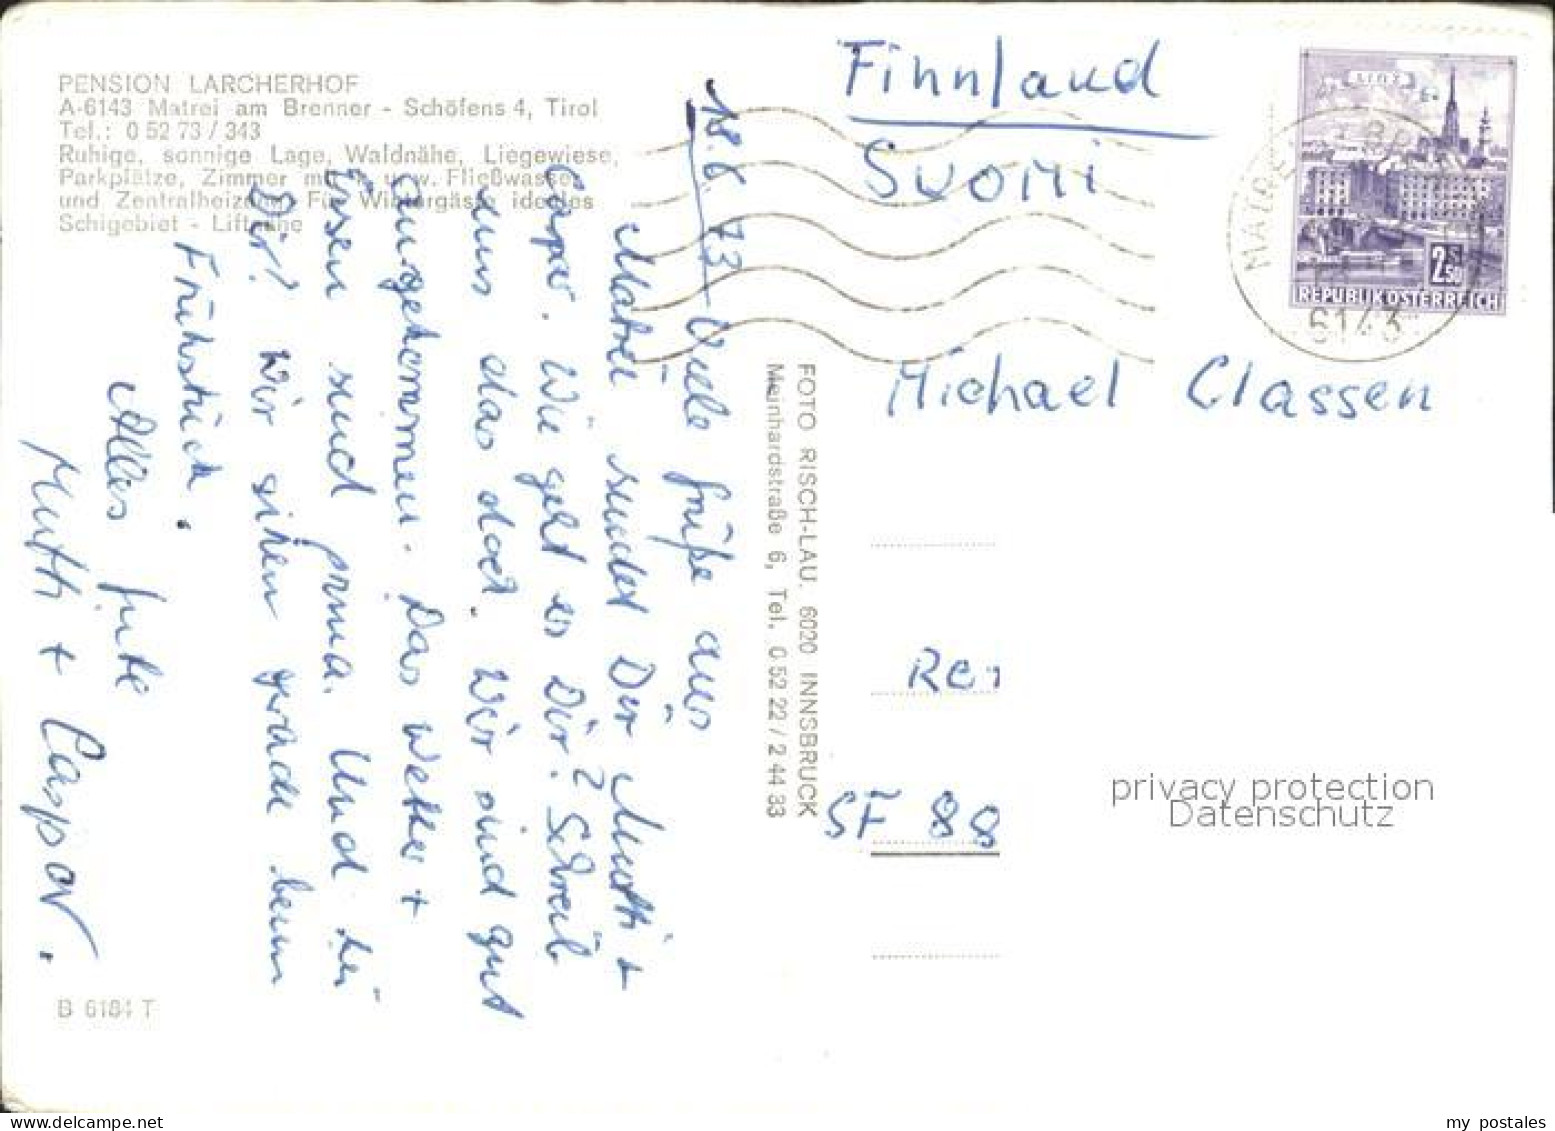 PENSION LARCHERHOF
A-6143 Matrei am Brenner - Schöfens 4, Tirol
Tel.: 0 52 73 / 343
Ruhige, sonnige Lage, Waldnähe, Liegewiese,
Parkplätze, Zimmer u. w. Fließwasser
und Zentralheizung Für Wintergäste ideales
Schigebiet - Liftnähe
18.6.73
Viele Grüße aus
Matrei sendet Dir Mutti +
Caspar. Wie geht es Dir? Schreib
uns das doch. Wir sind gut
angekommen. Das Wetter +
Essen sind prima. Und bei
Dir? Wir sitzen gerade beim
Frühstück.
Alles Gute
Mutti + Caspar.
B 6184 T
FOTO RISCH-LAU, 6020 INNSBRUCK
Meinhardstraße 6, Tel. 0 52 22 / 2 44 33
Finnland
Suomi
LINZ
2.50
REPUBLIK ÖSTERREICH
6143
Michael Classen
SF 88
privacy protection
Datenschutz
my postales